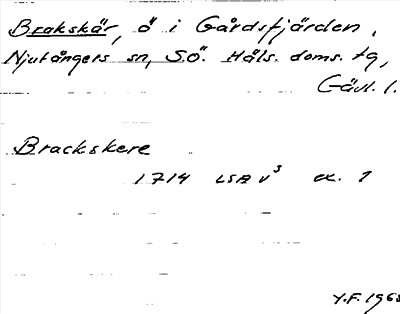 Brakskär, ö i Gårdsfjärden,
Njutångers sn, S.Ö. Häls. doms. tg,
Gävl. l.
Brackskere
1714 LSA V³ ex. 1
Y.F. 1965